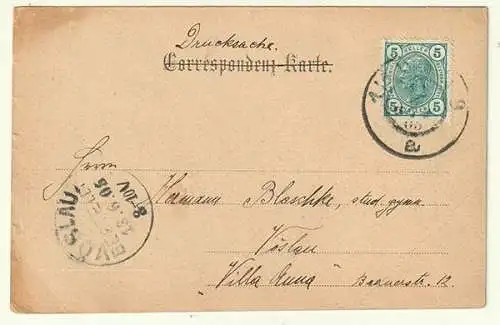 Drucksache.
Correspondenz-Karte.
5 5
5 5
a
6
Herrn
Hermann Blaschke, stud. gym.
Vöslau
"Villa Anna"
12.
VÖSLAU